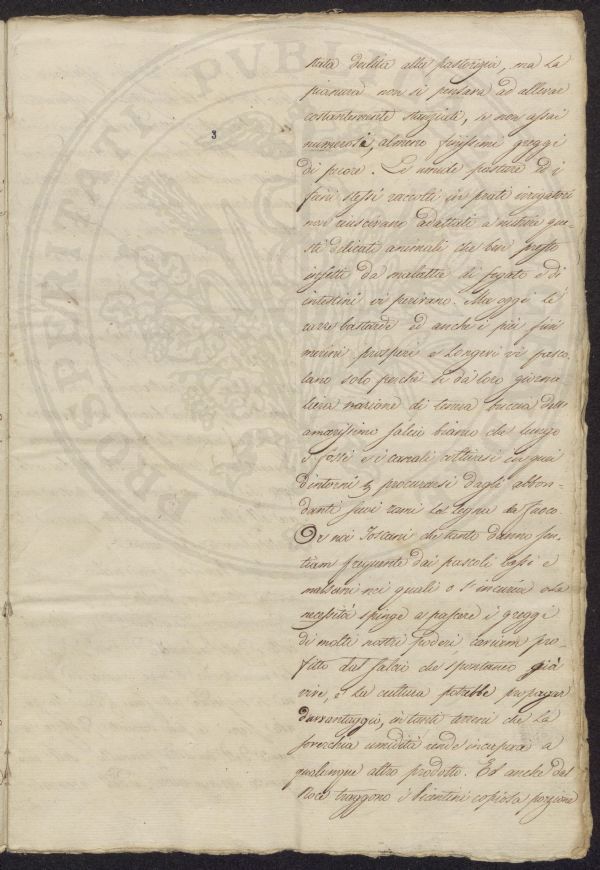 3
stata dedita alla pastorizia, ma la
pianura non si pensava ad allevar
costantemente stanziali, se non assai
numerosi, almeno finissimi greggi
di pecore. Le umide pasture ed i
fieni stessi raccolti in prati irrigatori
non riuscivano adattati a nutrire que-
sti delicati animali che ben presto
infetti da malattie di fegato e di
intestini vi perivano. Ma oggi le
razze bastarde ed anche i più fini
merini prosperi e longevi vi pasco
lano solo perchè si dà loro giorna
liera razione di tenera buccia dell'
amarissimo salcio bianco che lungo
i fossi e i canali coltivasi in quei
dintorni procurarsi dagli abbon-
danti suoi rami la legna da fuoco.
Or noi Toscani che tanto danno sen-
tiam frequente dai pascoli bassi e
malsani nei quali o l'incuria o la
necessità spinge a pascere i greggi
di molti nostri poderi caviam pro-
fitto dal salcio che spontaneo già
vive, e la cultura potrebbe propagar
davvantaggio, in tanti terreni che la
soverchia umidità rende incapaci a
qualunque altro prodotto. Ed anche dal
traggono i Vicentini copiosa porzione
PROSPERITATI PVBLICAE